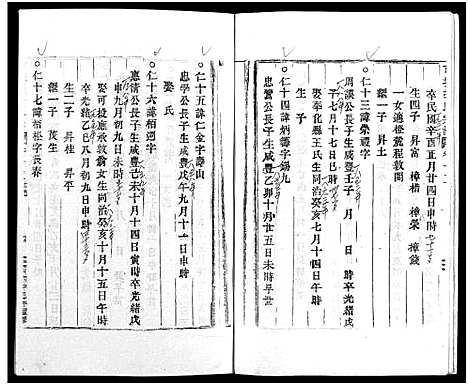 卒民國辛酉正月廿四日申時
生四子 昇富 樟楷 樟榮 樟錢
一女適橙黨程敦開
○仁十三諱榮禮字
周談公長子生咸豐壬子 月 日 時卒光緒戊
子七月十七日巳時
娶奉化縣王氏生同治癸亥七月十四日午時
生子
○仁十四諱炳藩字錫九
忠營公長子生咸豐乙卯十月廿五日未時早世
○仁十五諱仁金字壽山
忠學公長子生咸豐戊午九月十一日申時
娶氏
○仁十六諱栢迥字
惠倩公長子生咸豐己未十月十四日寅時卒光緒戊
申九月初九日未時
娶可捷應承敦翁女生同治癸亥十月十五日午時
卒光緒乙巳八月初九日申時
生二子 昇桂 昇平
繼一子 茂生
○仁十七諱栢松字長春